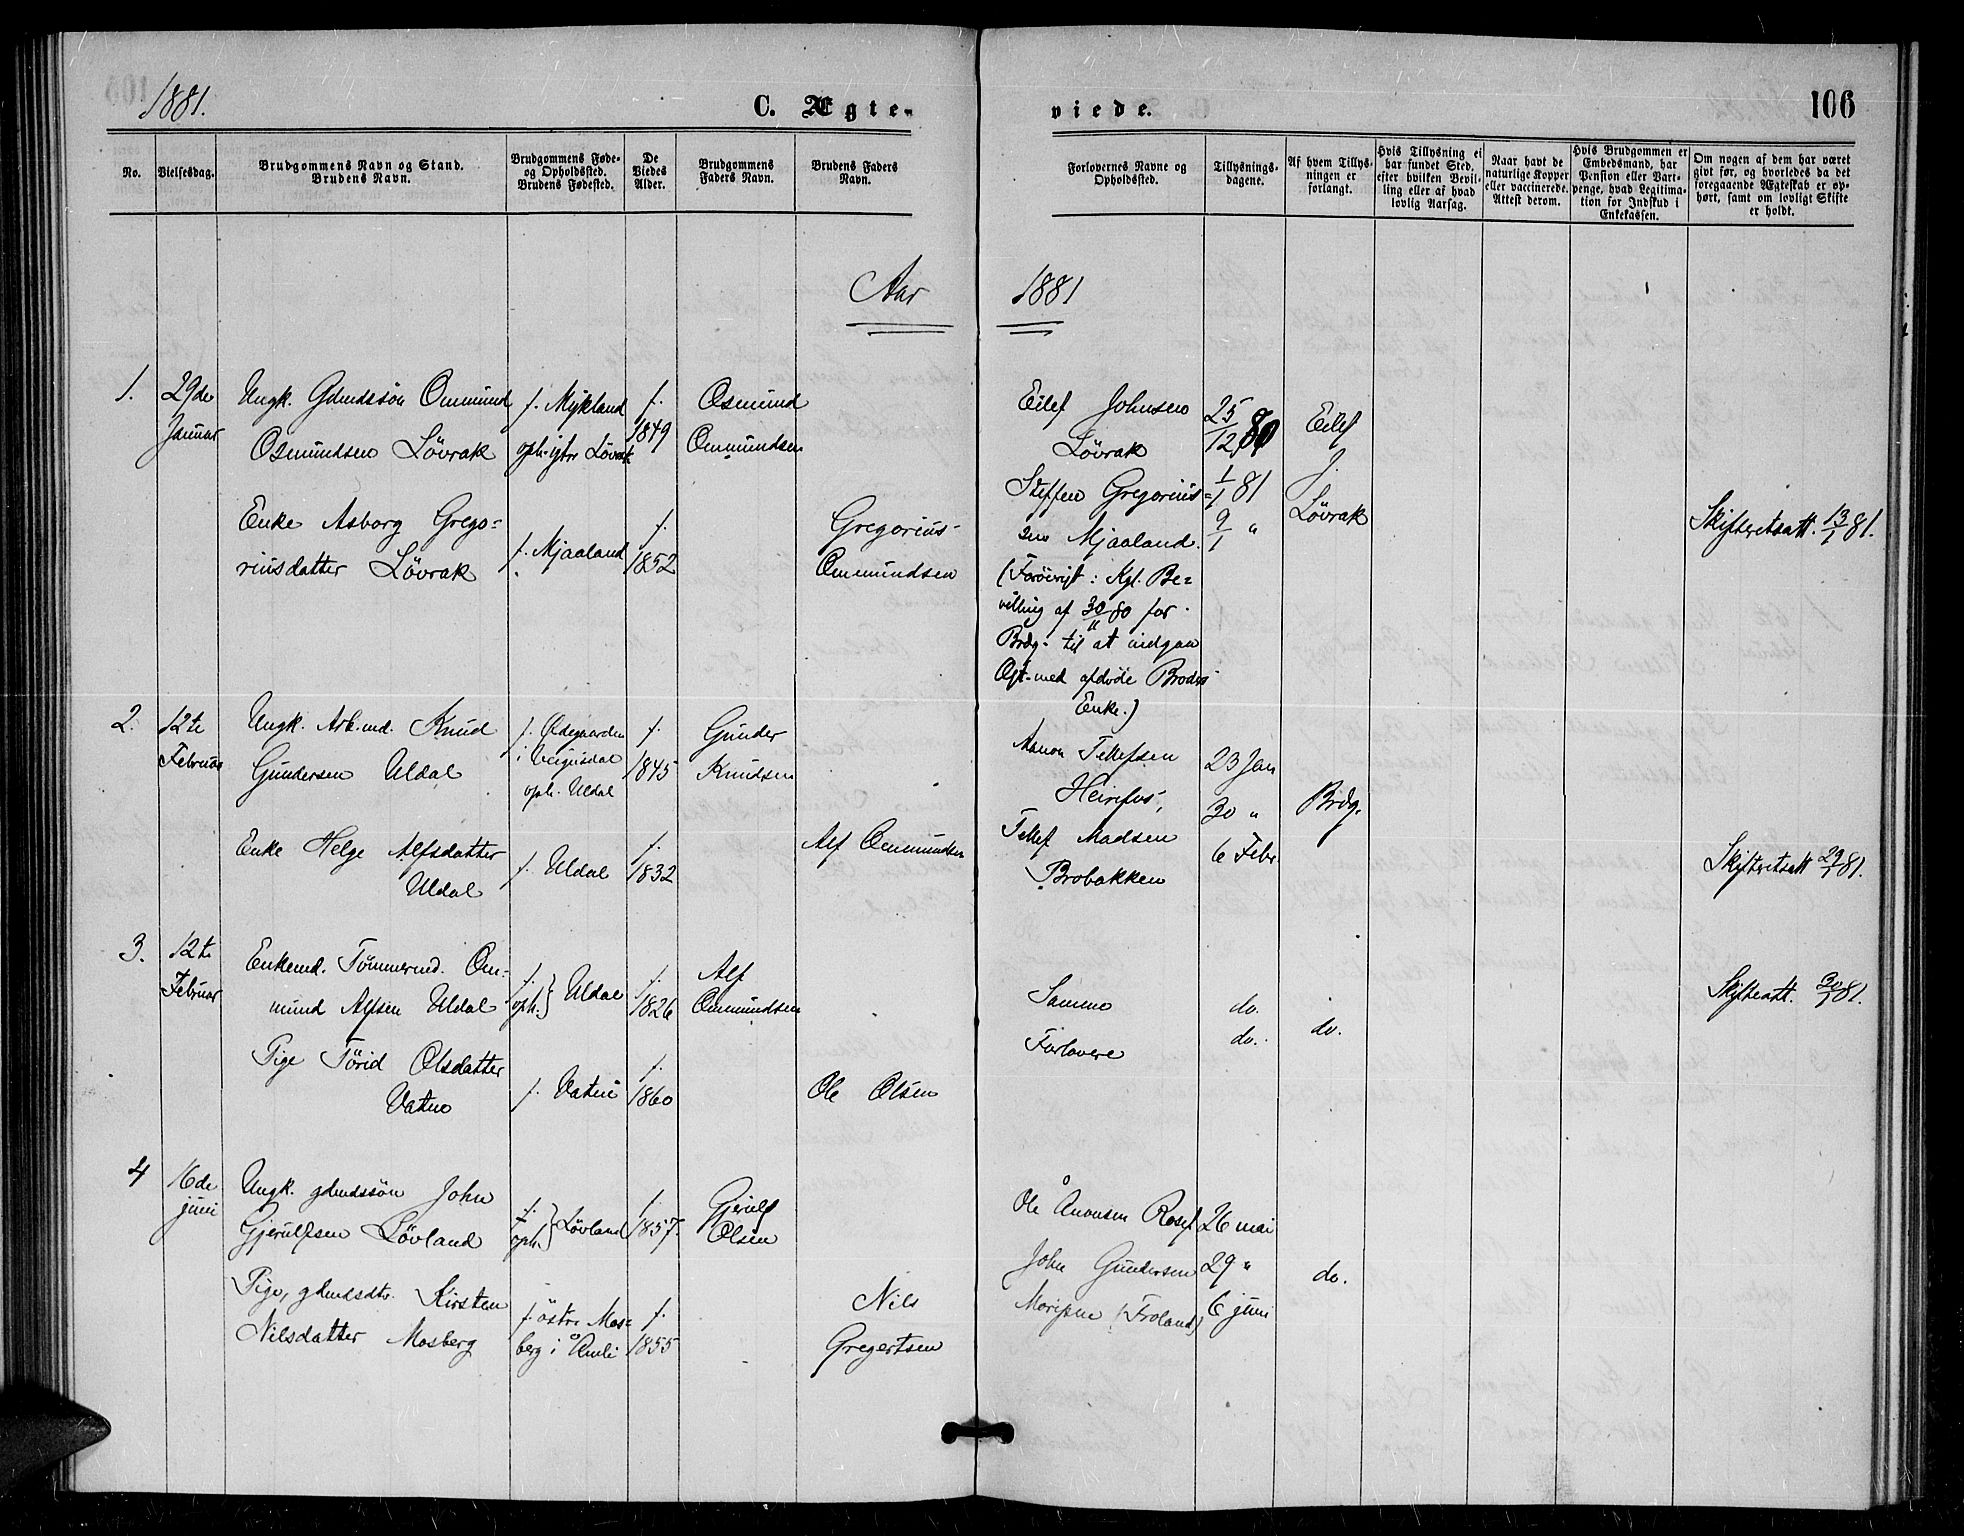 1881.
C. Ægte-
viede.
106
No.
Vielsesdag.
Brudgommens Navn og Stand.
Brudens Navn.
Brudgommens Føde-
og Opholdssted.
Brudens Fødested.
De
Viedes
Alder.
Brudgommens
Faders Navn.
Brudens Faders
Navn.
Forlovernes Navne og
Opholdssted.
Tillysnings-
dagene.
Af hvem Tillys-
ningen er
forlangt.
Hvis Tillysning ei
har fundet Sted,
efter hvilken Bevil-
ling eller af hvad
lovlig Aarsag.
Naar havt de
naturlige Kopper
eller vaccinerede.
Attest derom.
Hvis Brudgommen er
Embedsmand, har
Pension eller Vart-
penge, hvad Legitima-
tion for Indskud i
Enkekassen.
Om nogen af dem har været
givt før, og hvorledes da det
foregaaende Ægteskab er op-
hørt, samt om lovligt Skifte
er holdt.
Aar 1881
1.
29de
Januar
Ungk. Gdmdssön Ommund
Osmundsen Lövrak
f. Mykland
oph. ytre Lövrak
f.
1849
Osmund
Ommundsen
Enke Asborg Grego=
riusdatter Lövrak
f. Mjaaland
f.
1852
Gregorius
Ommundsen
Eilef Johnsen
Lövrak
Steffen Gregorius=
sen Mjaaland.
(Forövrigt: Kgl. Be=
villing af 30/11 80 for
Brdg. til at indgaa
Ægt. med afdöde Broders
Enke.)
25/12 80
1/1 81
9/1 "
Eilef
J.
Lövrak
Skifteretsatt. 13/1 81.
2.
12te
Februar
Ungk. Arb.md. Knud
Gundersen Uldal
f. Ødegaarden
i Vegusdal
oph. Uldal
f.
1845
Gunder
Knudsen
Enke Helge Alfsdatter
Uldal
f. Uldal
f.
1832
Alf Ommundsen
Aanon Tellefsen
Heirefos,
Tellef Madsen
Brobakken
23 Jan
30 "
6 Febr
Brdg.
Skifteretsatt 29/1 81.
3.
12te
Februar
Enkemd. Tömmermd. Om=
mund Alfsen Uldal
f.
oph. } Uldal
f.
1826
Alf
Ommundsen
Pige Törid Olsdatter
Vatne
f. Vatne
f.
1860
Ole Olsen
Samme
Forlovere
do.
do.
do.
Skifteatt. 30/1 81.
4
16de
juni
Ungk. gdmdssön John
Gjerulfsen Lövland
f.
oph. } Lövland
f.
1857.
Gjerulf
Olsen
Pige, gdmdsdtr. Kirsten
Nilsdatter Mosberg
f. östre Mos=
berg i Åmli
f.
1855
Nils
Gregertsen
Ole Ånonsen Rosef
John Gundersen
(Froland)
26 mai
29 "
6 juni
do.